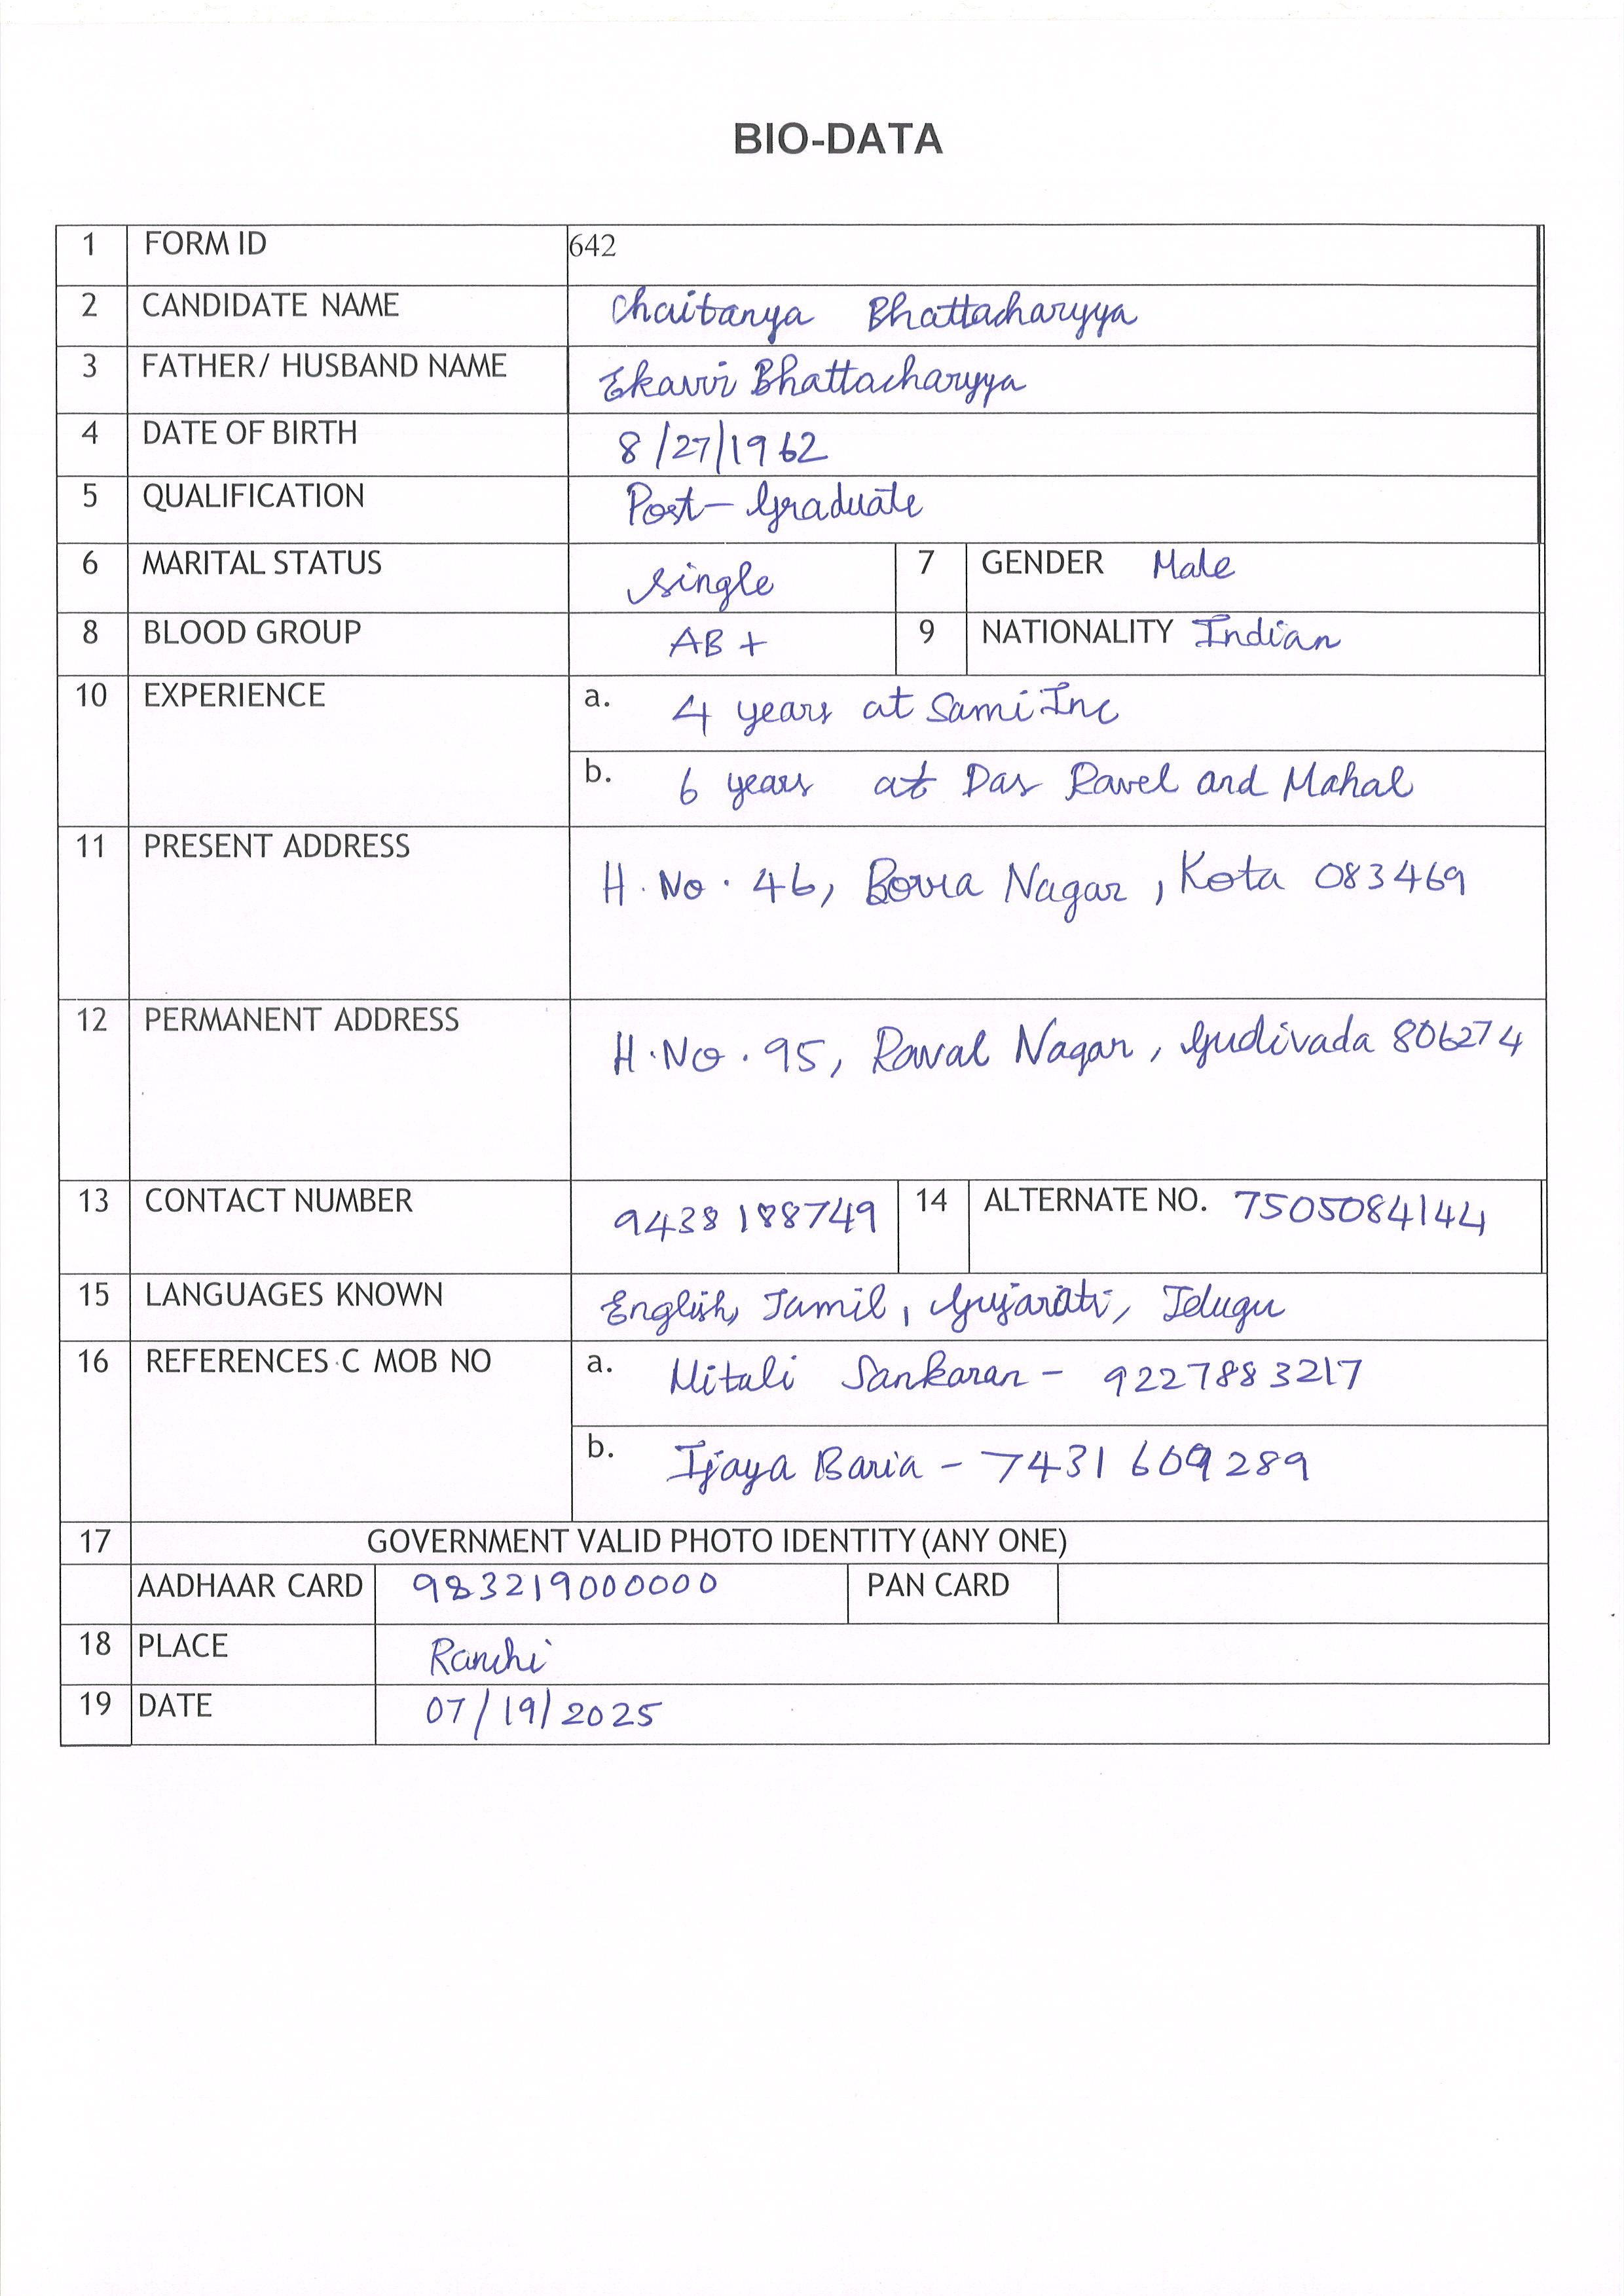 BIO-DATA
1 FORM ID 642
2 CANDIDATE NAME Chaitanya Bhattacharyya
3 FATHER/ HUSBAND NAME Ekavir Bhattacharyya
4 DATE OF BIRTH 8/27/1962
5 QUALIFICATION Post-Graduate
6 MARITAL STATUS single 7 GENDER Male
8 BLOOD GROUP AB+ 9 NATIONALITY Indian
10 EXPERIENCE a. 4 years at Sami Inc
b. 6 years at Das Ravel and Mahal
11 PRESENT ADDRESS H.No.46, Borra Nagar, Kota 083469
12 PERMANENT ADDRESS H.No.95, Raval Nagar, Gudivada 806274
13 CONTACT NUMBER 9438188749 14 ALTERNATE NO. 7505084144
15 LANGUAGES KNOWN English, Tamil, Gujarati, Telugu
16 REFERENCES C MOB NO a. Mitali Sankaran - 9227883217
b. Ijaya Baria - 7431609289
17 GOVERNMENT VALID PHOTO IDENTITY (ANY ONE)
AADHAAR CARD 983219000000 PAN CARD
18 PLACE Ranchi
19 DATE 07/19/2025